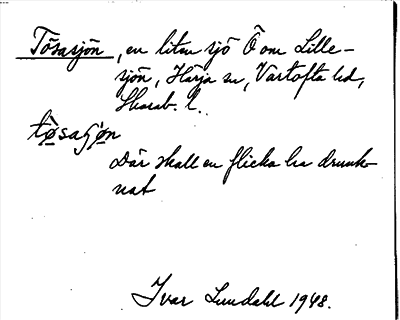 Tösasjön, en liten sjö Ö om Lille-
sjön, Härja sn, Vartofta hd,
Skarab. l.
tøsaʃøn
Där skall en flicka ha drunk-
nat
Ivar Lundahl 1948.